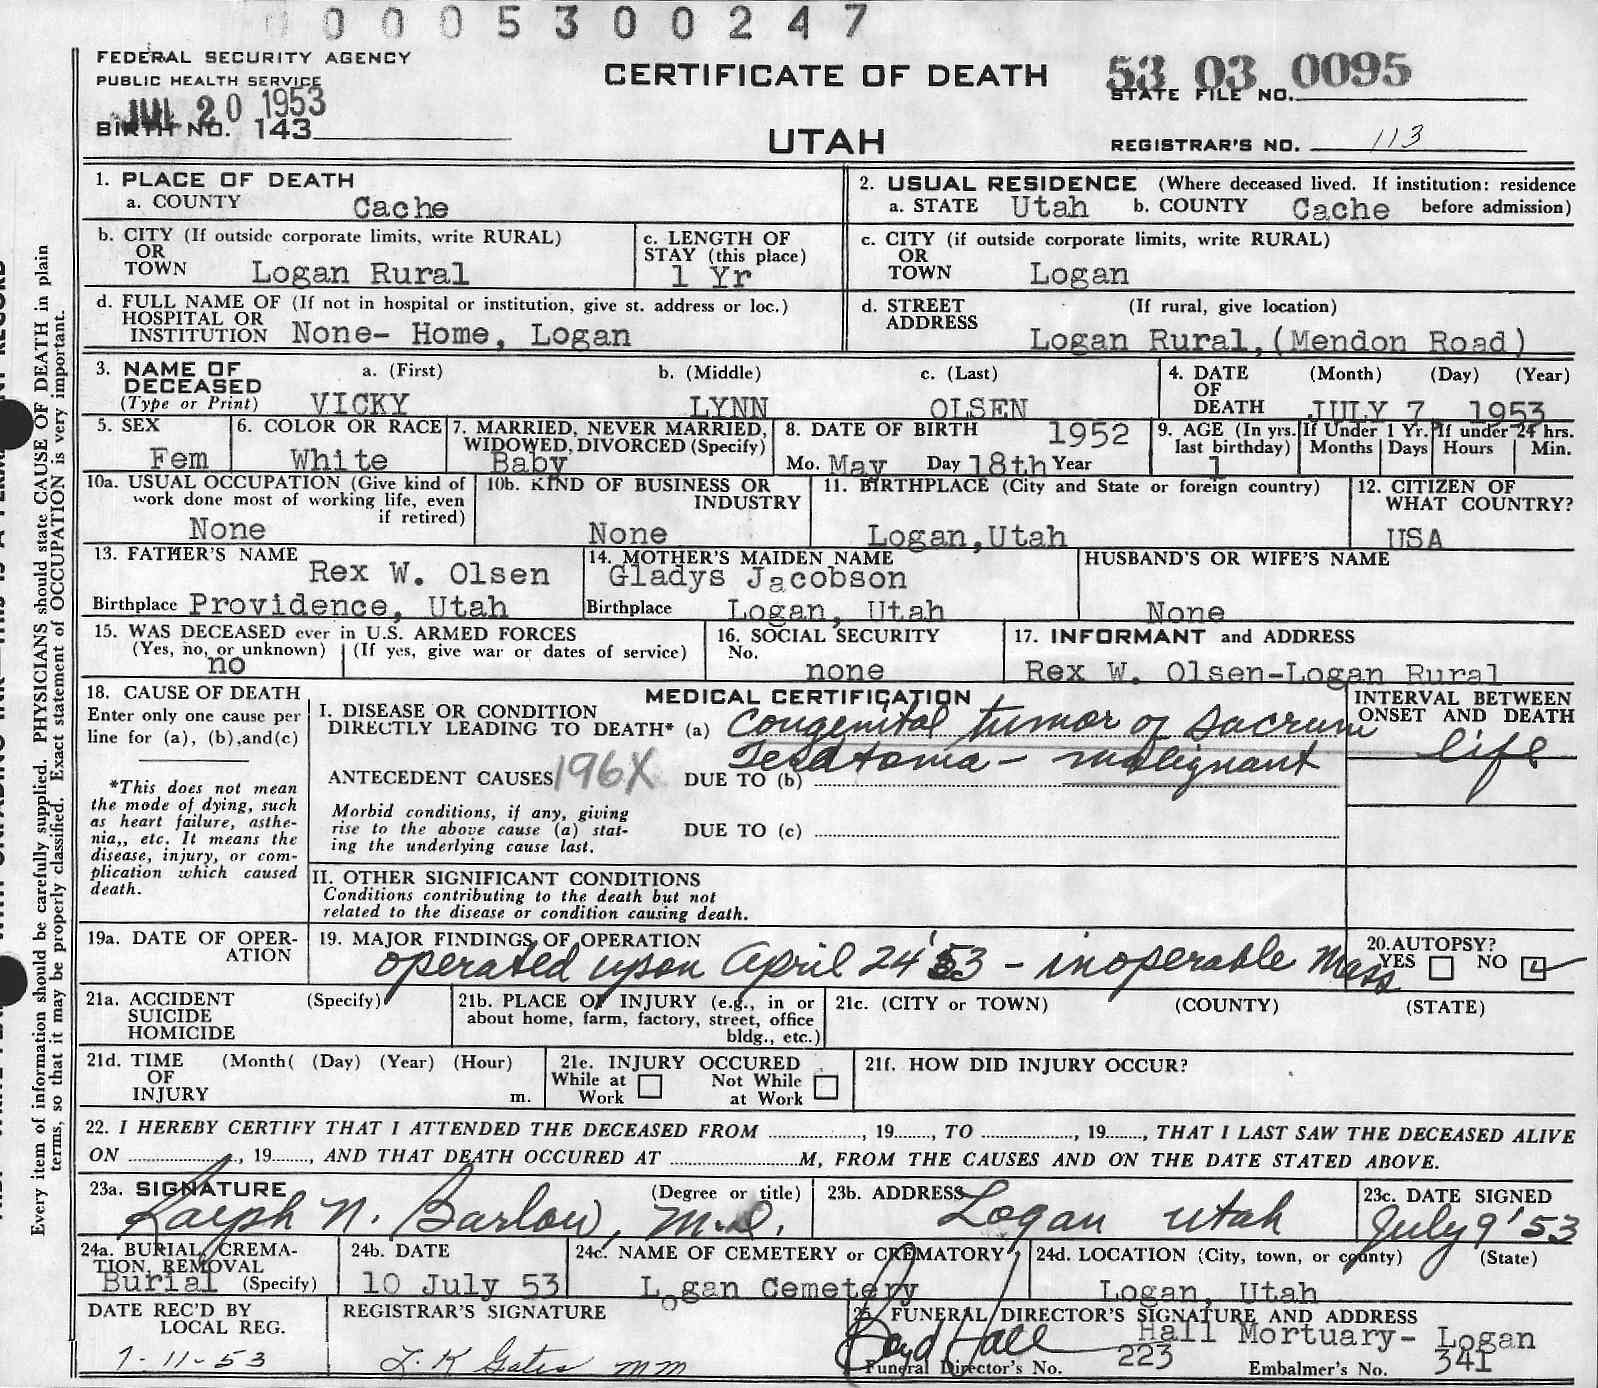 0 0 0 0 5 3 0 0 2 4 7
FEDERAL SECURITY AGENCY
PUBLIC HEALTH SERVICE
JUL 20 1953
BIRTH NO. 143
CERTIFICATE OF DEATH
UTAH
53 03 0095
STATE FILE NO.
REGISTRAR'S NO. 113
1. PLACE OF DEATH
a. COUNTY Cache
2. USUAL RESIDENCE (Where deceased lived. If institution: residence
a. STATE Utah b. COUNTY Cache before admission)
b. CITY (If outside corporate limits, write RURAL)
OR
TOWN Logan Rural
c. LENGTH OF
STAY (this place)
1 Yr
c. CITY (if outside corporate limits, write RURAL)
OR
TOWN Logan
d. FULL NAME OF (If not in hospital or institution, give st. address or loc.)
HOSPITAL OR
INSTITUTION None- Home, Logan
d. STREET (If rural, give location)
ADDRESS
Logan Rural,(Mendon Road)
3. NAME OF a. (First) b. (Middle) c. (Last)
DECEASED
(Type or Print) VICKY LYNN OLSEN
4. DATE (Month) (Day) (Year)
OF
DEATH JULY 7 1953
5. SEX
Fem
6. COLOR OR RACE
White
7. MARRIED, NEVER MARRIED,
WIDOWED, DIVORCED (Specify)
Baby
8. DATE OF BIRTH 1952
Mo. May Day 18th Year
9. AGE (In yrs.
last birthday)
1
If Under 1 Yr.
Months Days
If under 24 hrs.
Hours Min.
10a. USUAL OCCUPATION (Give kind of
work done most of working life, even
if retired)
None
10b. KIND OF BUSINESS OR
INDUSTRY
None
11. BIRTHPLACE (City and State or foreign country)
Logan,Utah
12. CITIZEN OF
WHAT COUNTRY?
USA
13. FATHER'S NAME
Rex W. Olsen
Birthplace Providence, Utah
14. MOTHER'S MAIDEN NAME
Gladys Jacobson
Birthplace Logan, Utah
HUSBAND'S OR WIFE'S NAME
None
15. WAS DECEASED ever in U.S. ARMED FORCES
(Yes, no, or unknown) (If yes, give war or dates of service)
no
16. SOCIAL SECURITY
No.
none
17. INFORMANT and ADDRESS
Rex W. Olsen-Logan Rural
18. CAUSE OF DEATH
Enter only one cause per
line for (a), (b),and(c)
*This does not mean
the mode of dying, such
as heart failure, asthe-
nia,, etc. It means the
disease, injury, or com-
plication which caused
death.
MEDICAL CERTIFICATION
I. DISEASE OR CONDITION
DIRECTLY LEADING TO DEATH* (a) Congenital tumor of sacrum
Teratoma - malignant
ANTECEDENT CAUSES 196X DUE TO (b)
Morbid conditions, if any, giving
rise to the above cause (a) stat-
ing the underlying cause last.
DUE TO (c)
INTERVAL BETWEEN
ONSET AND DEATH
life
II. OTHER SIGNIFICANT CONDITIONS
Conditions contributing to the death but not
related to the disease or condition causing death.
19a. DATE OF OPER-
ATION
19. MAJOR FINDINGS OF OPERATION
operated upon April 24 '53 - inoperable Mass
20.AUTOPSY?
YES NO
21a. ACCIDENT (Specify)
SUICIDE
HOMICIDE
21b. PLACE OF INJURY (e.g., in or
about home, farm, factory, street, office
bldg., etc.)
21c. (CITY or TOWN) (COUNTY) (STATE)
21d. TIME (Month( (Day) (Year) (Hour)
OF
INJURY m.
21e. INJURY OCCURED
While at Not While
Work at Work
21f. HOW DID INJURY OCCUR?
22. I HEREBY CERTIFY THAT I ATTENDED THE DECEASED FROM ............, 19......, TO ............, 19......, THAT I LAST SAW THE DECEASED ALIVE
ON ............, 19......, AND THAT DEATH OCCURED AT ............M, FROM THE CAUSES AND ON THE DATE STATED ABOVE.
23a. SIGNATURE (Degree or title)
Ralph N. Barlow, M.D.
23b. ADDRESS
Logan Utah
23c. DATE SIGNED
July 9 '53
24a. BURIAL, CREMA-
TION, REMOVAL
Burial (Specify)
24b. DATE
10 July 53
24c. NAME OF CEMETERY or CREMATORY
Logan Cemetery
24d. LOCATION (City, town, or county) (State)
Logan, Utah
DATE REC'D BY
LOCAL REG.
7-11-53
REGISTRAR'S SIGNATURE
25. FUNERAL DIRECTOR'S SIGNATURE AND ADDRESS
Boyd Hall Hall Mortuary- Logan
Funeral Director's No. 223 Embalmer's No. 341
Every item of information should be carefully supplied. PHYSICIANS should state CAUSE OF DEATH in plain
terms, so that it may be properly classified. Exact statement of OCCUPATION is very important.